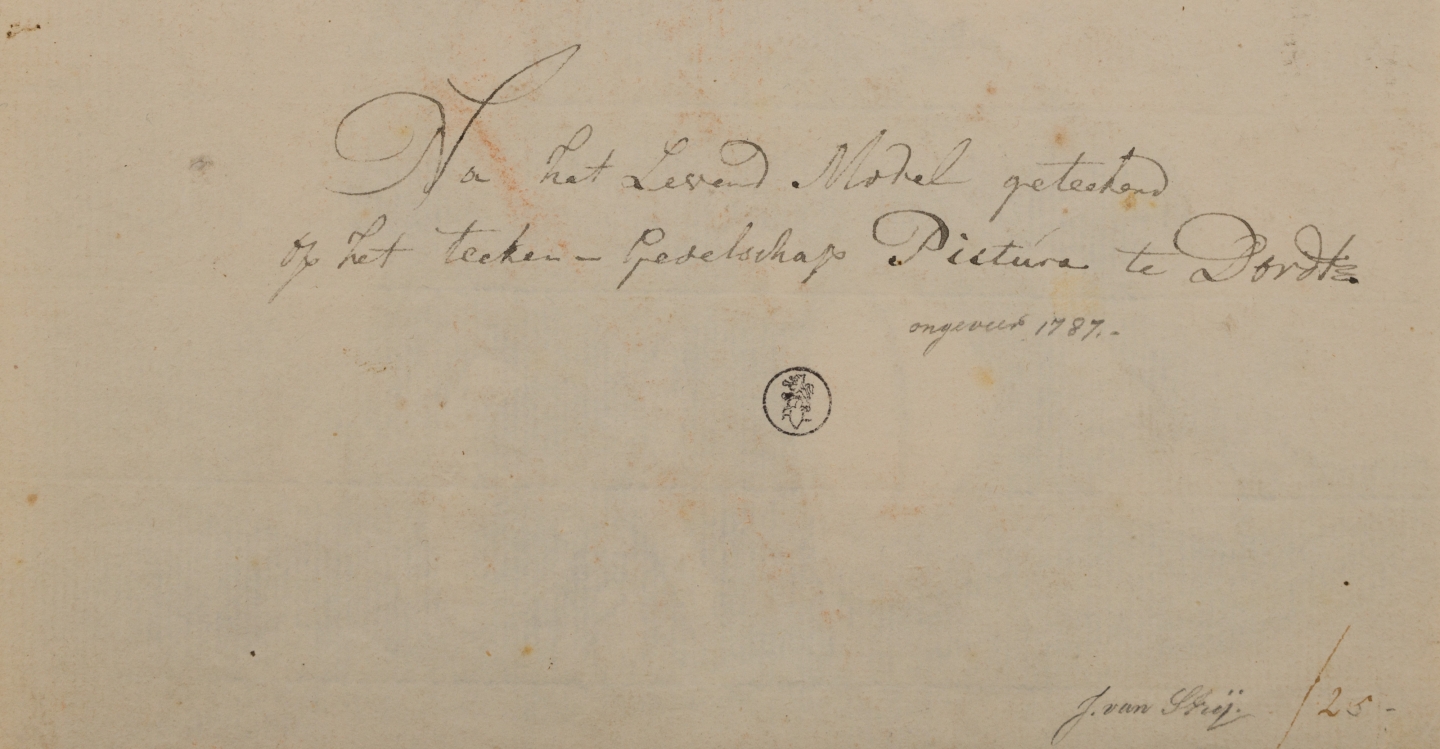 Na het Levend Model geteekend
op het teeken - Geselschap Pictura te Dordt
ongeveer 1787.-
J. van Strij. /25-